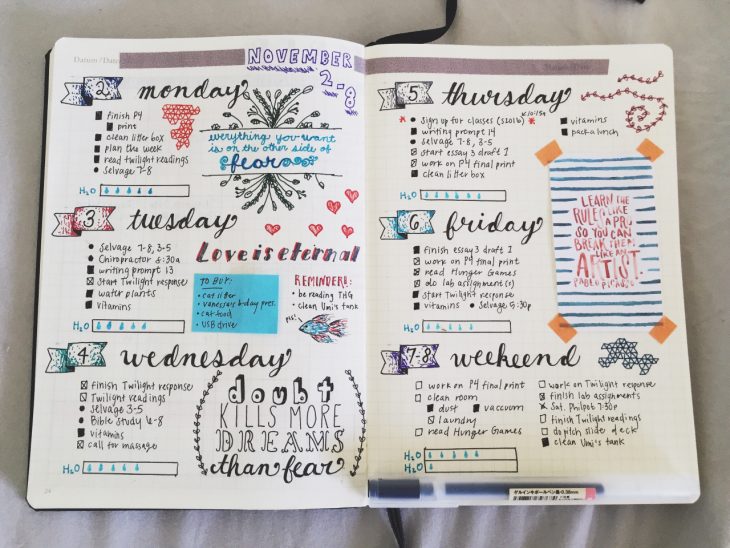 Datum/Date:
NOVEMBER
2-8
2 monday
finish P4
print
clean litter box
plan the week
read twilight readings
selvage 7-8
H2O
everything you want
is on the other side of
fear
3 tuesday
selvage 7-8, 3-5
Chiropractor 6:30a
writing prompt 13
start Twilight response
water plants
vitamins
H2O
Love is eternal
TO BUY:
cat litter
vanessa's b-day pres.
cat food
USB drive
REMINDER!!:
be reading THG
clean Umi's tank
4 wednesday
finish Twilight response
Twilight readings
selvage 3-5
Bible study 6-8
vitamins
call for massage
H2O
doubt
KILLS MORE
DREAMS
than fear
24
5 thursday
sign up for classes (jsolb)
writing prompt 14
selvage 7-8, 3-5
start essay 3 draft 1
work on P4 final print
clean litter box
vitamins
pack a lunch
H2O
LEARN THE
RULES LIKE
A PRO,
SO YOU CAN
BREAK THEM
LIKE AN
ARTIST.
PABLO PICASSO
6 friday
finish essay 3 draft 1
work on P4 final print
read Hunger Games
do lab assignment(s)
start Twilight response
vitamins
selvage 5:30p
H2O
7-8 weekend
work on P4 final print
clean room
dust
vaccuum
laundry
read Hunger Games
work on Twilight response
finish lab assignments
Sat. Philpot 7:30p
finish Twilight readings
do pitch slide deck
clean Umi's tank
H2O
H2O
ゲルインキボールペン黒・0.38mm